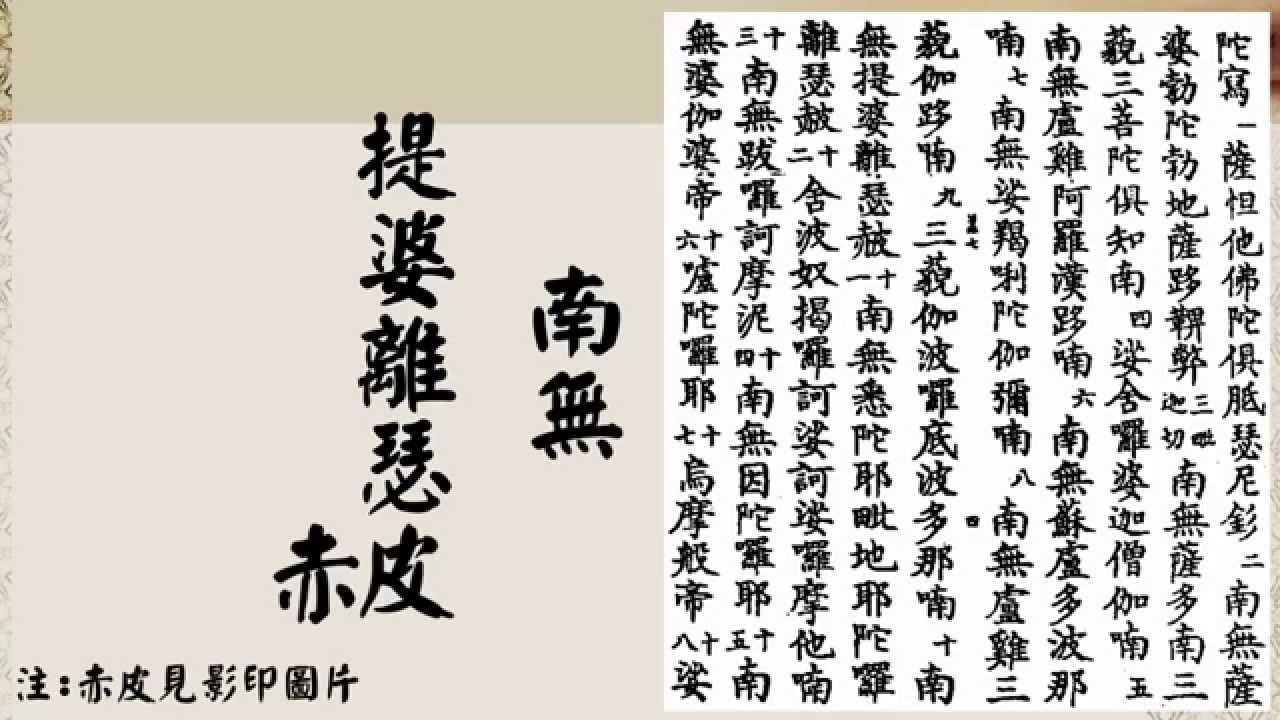 陀寫一薩怛他佛陀俱胝瑟尼釤二南無薩
婆勃陀勃地薩跢鞞弊三毗迦切南無薩多南三
藐三菩陀俱知南四娑舍囉婆迦僧伽喃五
南無盧雞阿羅漢跢喃六南無蘇盧多波那
喃七南無娑羯唎陀伽彌喃八南無盧雞三
藐伽跢喃九三藐伽波囉底波多那喃十南
無提婆離瑟赧十一南無悉陀耶毗地耶陀囉
離瑟赧十二舍波奴揭囉訶娑訶娑囉摩他喃
十三南無跋囉訶摩泥十四南無因陀囉耶十五南
無婆伽婆帝十六嚧陀囉耶十七烏摩般帝十八娑
南無
提婆離瑟赤皮
注:赤皮見影印圖片